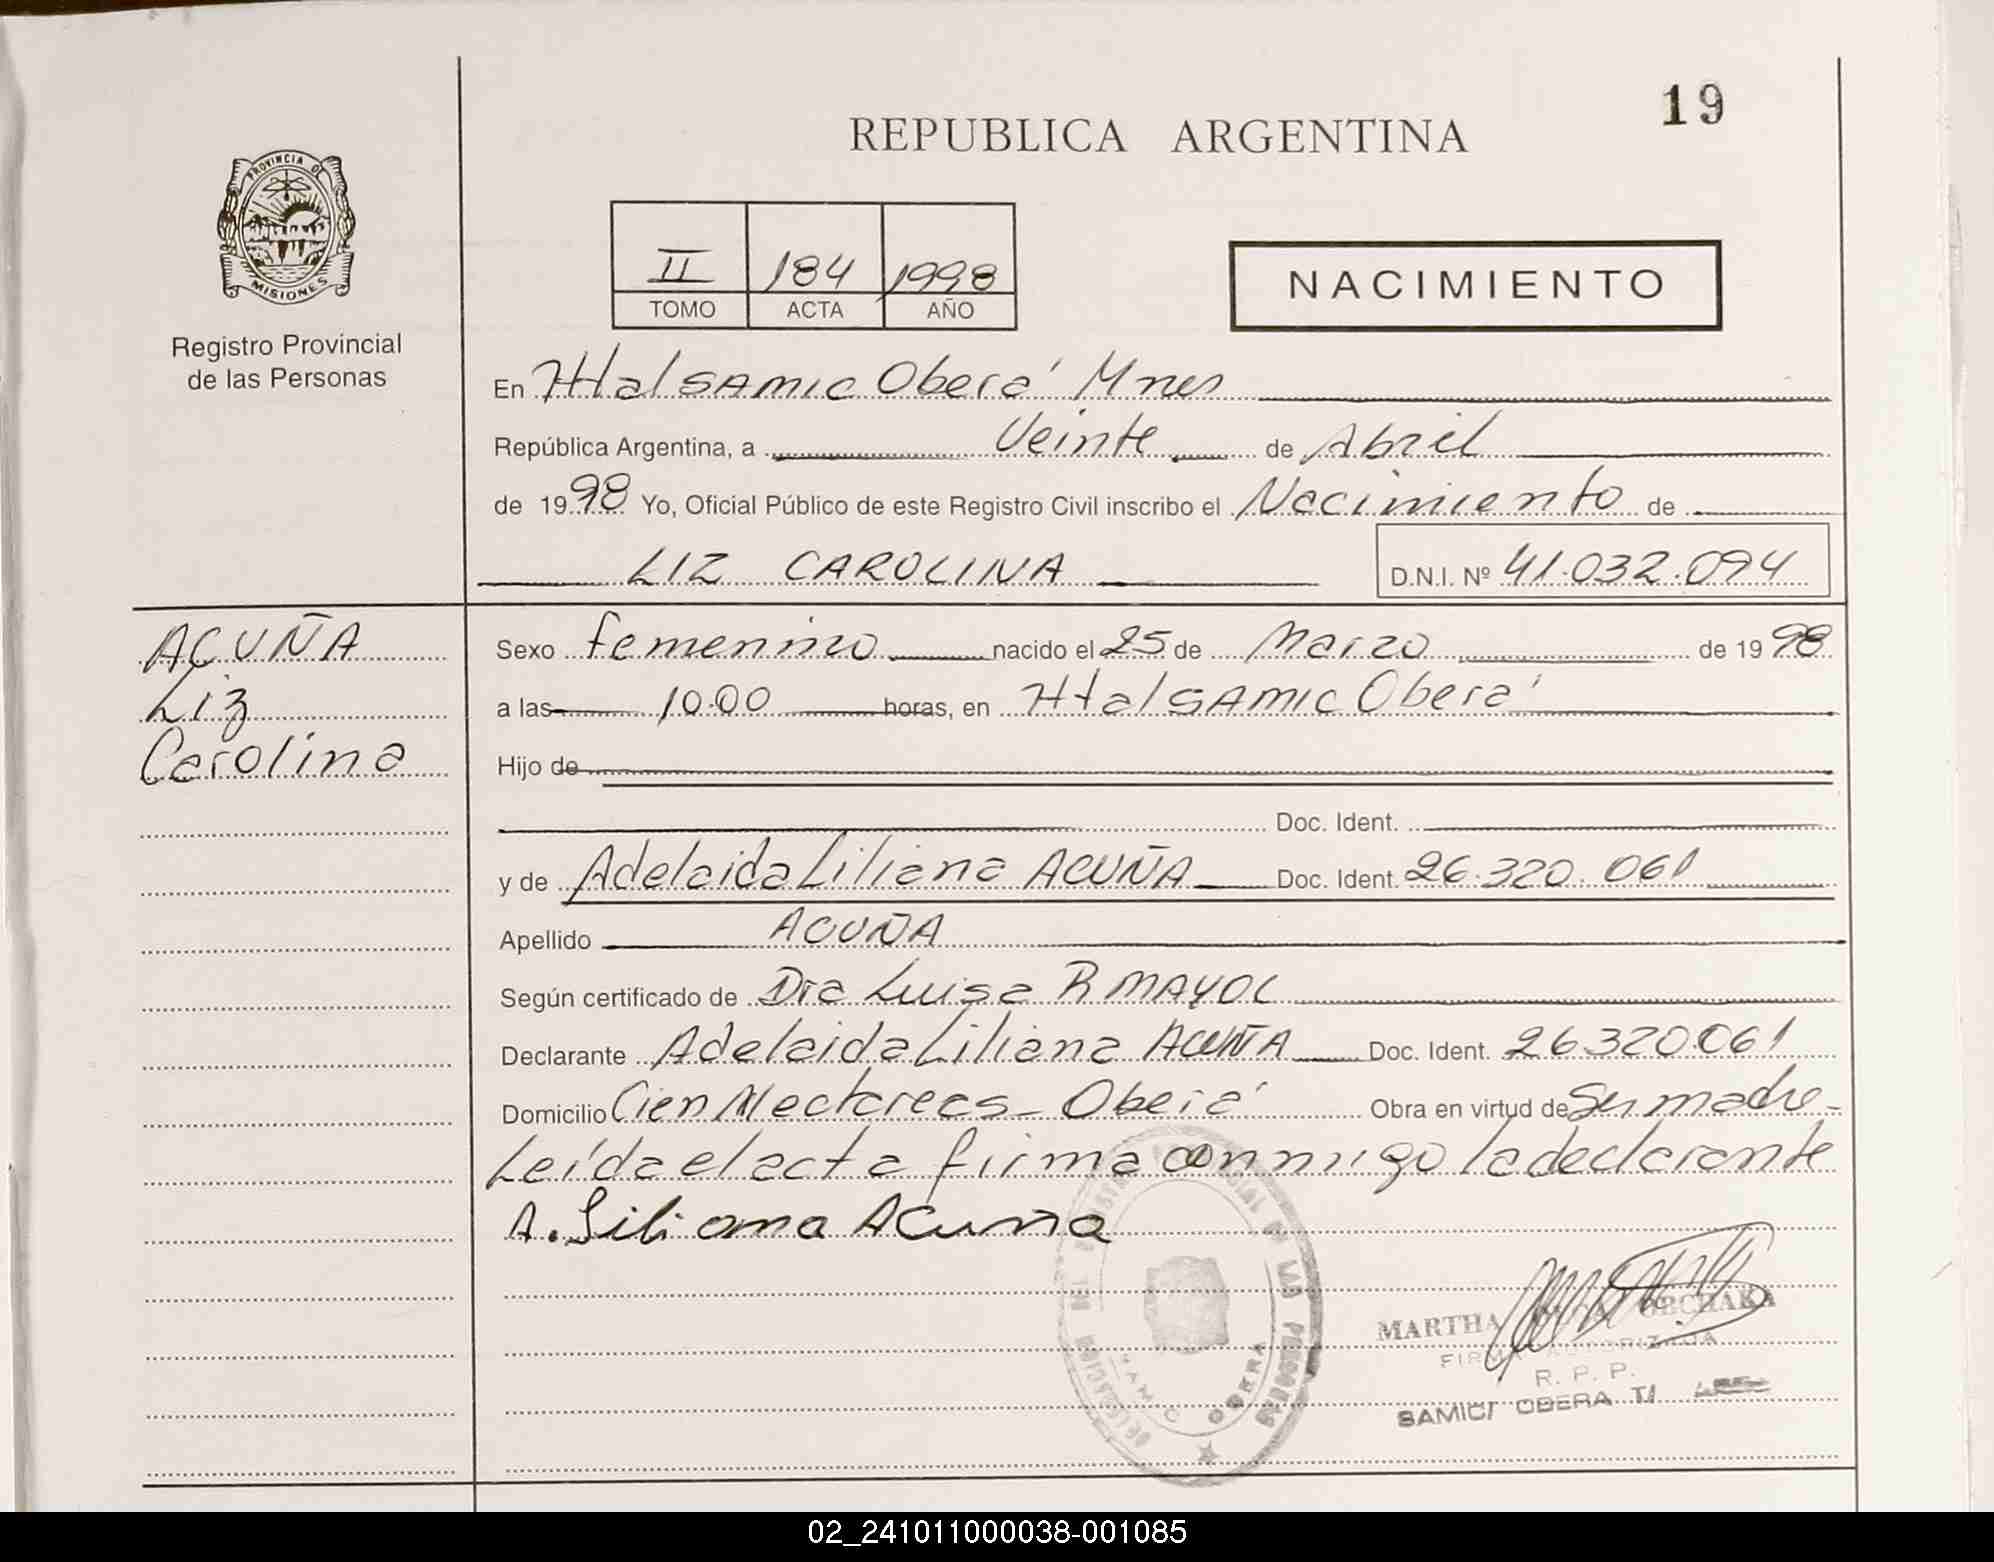 19
REPUBLICA ARGENTINA
PROVINCIA DE
MISIONES
Registro Provincial
de las Personas
II 184 1998
TOMO ACTA AÑO
NACIMIENTO
En Htal SAMIC Oberá Mnes
República Argentina, a Veinte de Abril
de 1998 Yo, Oficial Público de este Registro Civil inscribo el Nacimiento de
LIZ CAROLINA D.N.I. Nº 41.032.094
ACUÑA
Liz
Carolina
Sexo femenino nacido el 25 de Marzo de 1998
a las 10.00 horas, en Htal SAMIC Oberá
Hijo de
Doc. Ident.
y de Adelaida Liliana ACUÑA Doc. Ident. 26.320.061
Apellido ACUÑA
Según certificado de Dra Luisa R MAYOL
Declarante Adelaida Liliana ACUÑA Doc. Ident. 26320061
Domicilio Cien Hectareas - Oberá Obra en virtud de Su madre -
Leída el acta firma conmigo la declarante
A. Liliana Acuña
MARTHA
FIRMA AUTORIZADA
R. P. P.
SAMIC OBERA
02_241011000038-001085